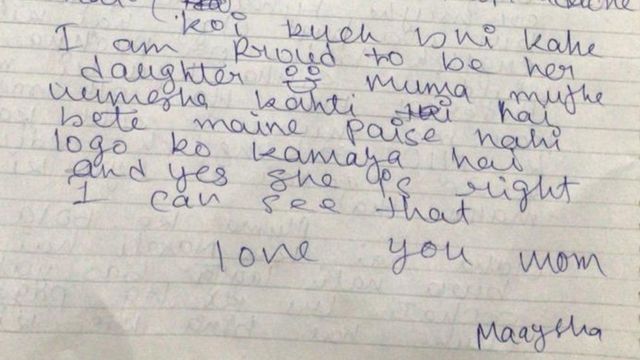 koi kuch bhi kahe
I am proud to be her
daughter muma mujhe
humesha kahti hai
bete maine paise nahi
logo ko kamaya hai
and yes she is right
I can see that
love you mom
Maaysha